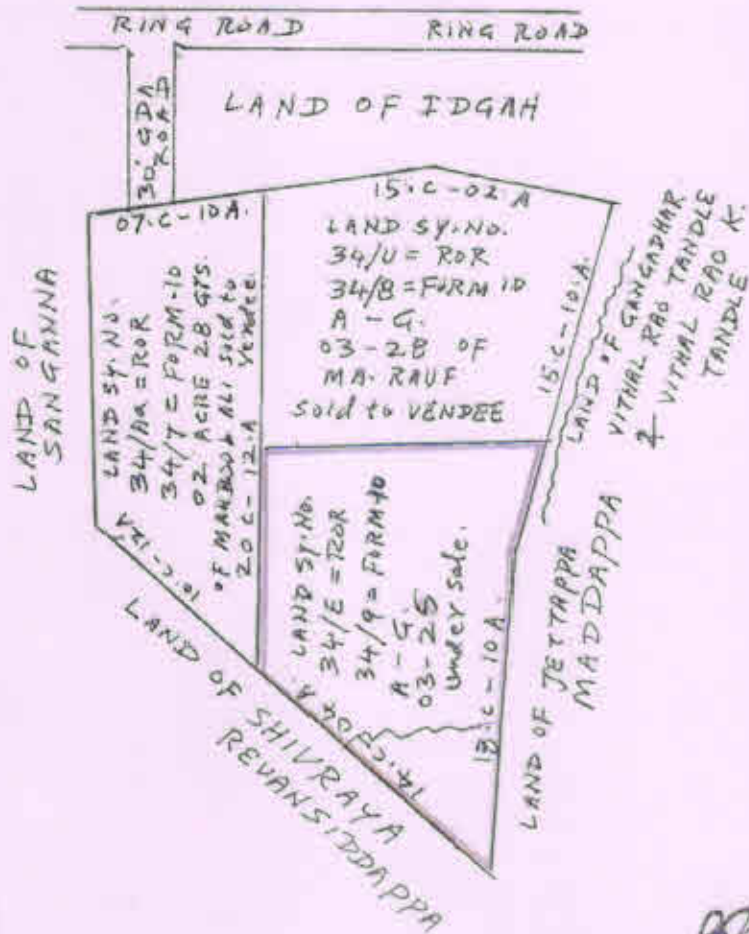 RING ROAD RING ROAD
30' GDA
ROAD
LAND OF IDGAH
07.C-10A.
15.C-02 A
LAND OF
SANGANNA
LAND SY.NO.
34/Aa = ROR
34/7 = FORM-10
02 ACRE 28 GTS.
OF MAHBOOB ALI sold to
Vendee.
20 C-12.A
10.C-12A
LAND SY.NO.
34/U = ROR
34/8 = FORM 10
A - G.
03-28 OF
MA. RAUF
sold to VENDEE
15.C-10.A.
LAND OF GANGADHAR
VITHAL RAO TANDLE
& VITHAL RAO K.
TANDLE
LAND SY.No.
34/E = ROR
34/9 = FORM 10
A - G.
03-25
under sale.
14.C-04 A.
13.C-10A.
LAND OF JETTAPPA
MADDAPPA
LAND OF SHIVRAYA
REVANSIDDAPPA